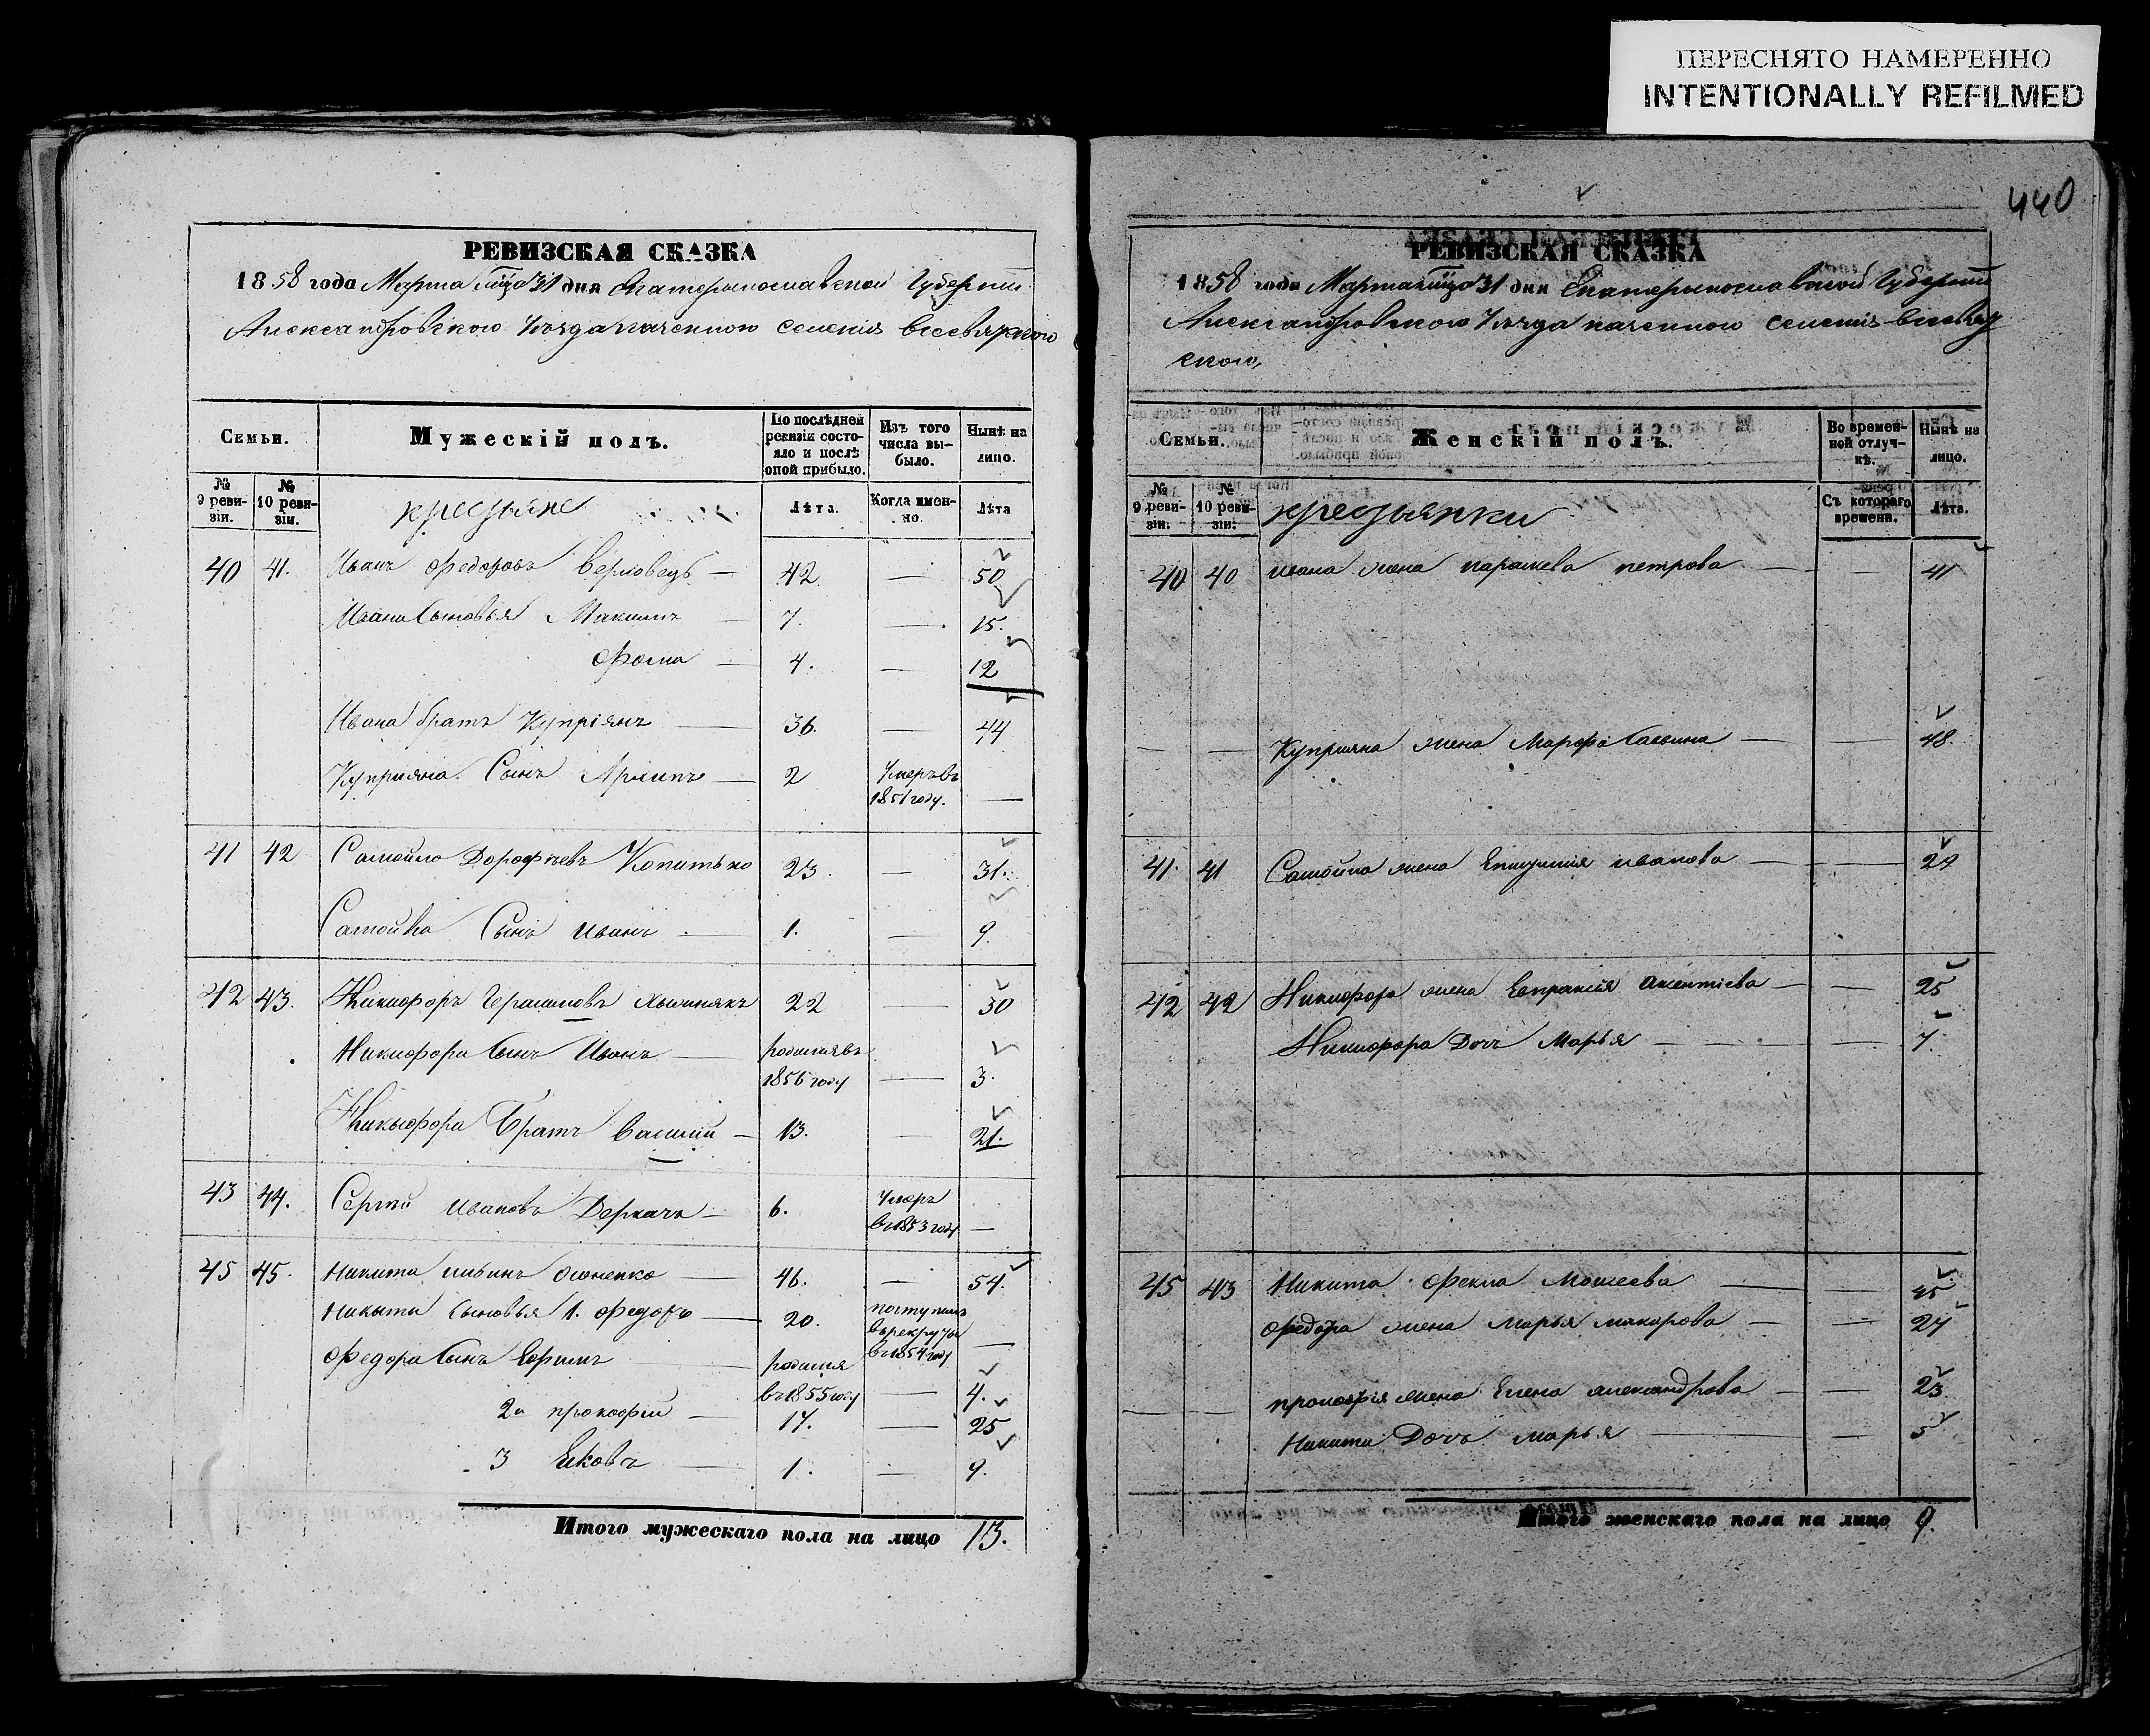 ПЕРЕСНЯТО НАМЕРЕННО
INTENTIONALLY REFILMED
РЕВИЗСКАЯ СКАЗКА
1858 года Марта 31 дня Екатеринославской Губернии
Александровского Уезда казенного селения Всесвятского
Семьи. Мужескій полъ. По послѣдней ревизіи состояло и послѣ оной прибыло. Изъ того числа выбыло. Нынѣ на лицо.
№ 9 ревизіи. № 10 ревизіи. крестьяне Лѣта. Когда именно. Лѣта
40 41. Иванъ Федоровъ — 42 — 50
Ивана Сыновья Максимъ — 7. — 15.
Фома — 4. — 12
Ивана братъ Купріянъ — 36. — 44
Куприяна Сынъ Архипъ — 2 Умеръ въ 1851 году. —
41 42 Самойло Дорофѣевъ Копитько 23 — 31.
Самойла Сынъ Иванъ — 1. — 9.
42 43. Никифоръ Герасимовъ 22 — 30
Никифора Сынъ Иванъ — родился въ 1856 году — 3.
Никифора Братъ Василий — 13. — 21.
43 44. Сергий Ивановъ Деркачъ — 6. Умеръ въ 1853 году —
45 45. Никита — 46. — 54.
Никиты Сыновья 1. Федоръ — 20. поступилъ въ рекруты въ 1854 году —
Федора Сынъ Ефимъ — родился въ 1855 году — 4.
2й прокофий — 17. — 25
3 Яковъ — 1. — 9.
Итого мужескаго пола на лицо 13.
440
РЕВИЗСКАЯ СКАЗКА
1858 года Марта 31 дня Екатеринославской Губернии
Александровского Уезда казенного селения Всесвят
ского,
Семьи. Женскій полъ. Во временной отлучкѣ. Нынѣ на лицо.
№ 9 ревизіи. № 10 ревизіи. крестьянки Съ котораго времени. Лѣта.
40 40 Ивана жена параскева петрова — — 41
— — Куприяна жена Марфа Савина — — 48.
41. 41 Самойла жена иванова — — 29
42 42 Никифора жена Евпраксия — — 25
Никифора Дочь Марья — — 7.
45 43 Никита Фекла Моисеева — — 45
Федора жена Марья макарова — — 24
— — прокофия жена Елена александрова — — 23.
Никити Дочь марья — — 5
Итого женскаго пола на лицо 9.